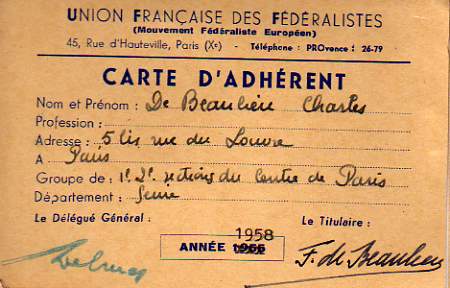 UNION FRANÇAISE DES FÉDÉRALISTES
(Mouvement Fédéraliste Européen)
45, Rue d'Hauteville, Paris (Xe) - Téléphone : PROvence : 26-79
CARTE D'ADHÉRENT
Nom et Prénom : De Beaulieu Charles
Profession :
Adresse : 5 bis rue du Louvre
A Paris
Groupe de : 1e 2e sections du Centre de Paris
Département : Seine
Le Délégué Général : Le Titulaire :
1958
ANNÉE 1955
F. de Beaulieu